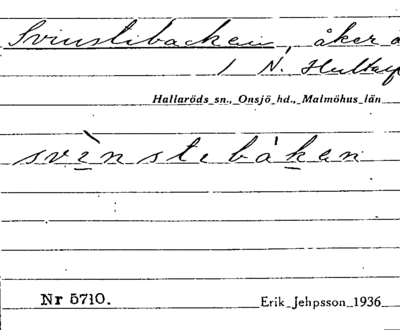 Svinstibacken, åker
1 N. Hultarp
Hallaröds sn., Onsjö hd., Malmöhus län
svìnstebàkan
Nr 5710.
Erik Jehpsson 1936